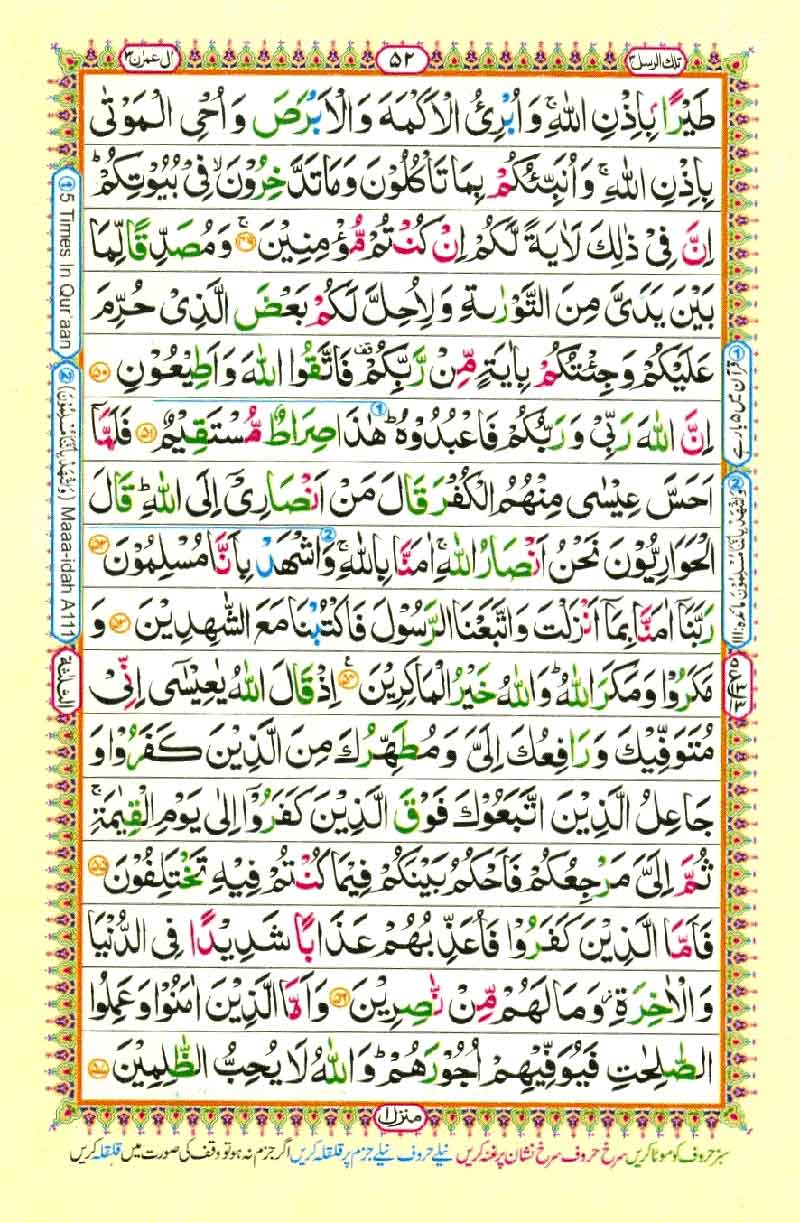 تلك الرسل ٣
٥٢
اٰل عمرٰن ٣
طَيْرًۢا بِاِذْنِ اللّٰهِ‌ۚ وَاُبْرِئُ الْاَكْمَهَ وَالْاَبْرَصَ وَاُحْىِ الْمَوْتٰى
بِاِذْنِ اللّٰهِ‌ۚ وَاُنَبِّئُكُمْ بِمَا تَاْكُلُوْنَ وَمَا تَدَّخِرُوْنَۙ فِىْ بُيُوْتِكُمْ‌ؕ
اِنَّ فِىْ ذٰلِكَ لَاٰيَةً لَّكُمْ اِنْ كُنْتُمْ مُّؤْمِنِيْنَ‌ۚ ٤٩ وَمُصَدِّقًا لِّمَا
بَيْنَ يَدَىَّ مِنَ التَّوْرٰٮةِ وَلِاُحِلَّ لَكُمْ بَعْضَ الَّذِىْ حُرِّمَ
عَلَيْكُمْ‌ وَجِئْتُكُمْ بِاٰيَةٍ مِّنْ رَّبِّكُمْ فَاتَّقُوا اللّٰهَ وَاَطِيْعُوْنِ ٥٠
اِنَّ اللّٰهَ رَبِّىْ وَرَبُّكُمْ فَاعْبُدُوْهُ‌ؕ ① هٰذَا صِرَاطٌ مُّسْتَقِيْمٌ ٥١ فَلَمَّاۤ
اَحَسَّ عِيْسٰى مِنْهُمُ الْكُفْرَ قَالَ مَنْ اَنْصَارِىْۤ اِلَى اللّٰهِ‌ؕ قَالَ
الْحَوَارِيُّوْنَ نَحْنُ اَنْصَارُ اللّٰهِ‌ۚ اٰمَنَّا بِاللّٰهِ‌ۚ ② وَاشْهَدْ بِاَنَّا مُسْلِمُوْنَ ٥٢
رَبَّنَاۤ اٰمَنَّا بِمَاۤ اَنْزَلْتَ وَاتَّبَعْنَا الرَّسُوْلَ فَاكْتُبْنَا مَعَ الشّٰهِدِيْنَ ٥٣ وَ
مَكَرُوْا وَمَكَرَ اللّٰهُ ‌ؕ وَاللّٰهُ خَيْرُ الْمَاكِرِيْنَ ٥٤ اِذْ قَالَ اللّٰهُ يٰعِيْسٰۤى اِنِّىْ
مُتَوَفِّيْكَ وَرَافِعُكَ اِلَىَّ وَمُطَهِّرُكَ مِنَ الَّذِيْنَ كَفَرُوْا وَ
جَاعِلُ الَّذِيْنَ اتَّبَعُوْكَ فَوْقَ الَّذِيْنَ كَفَرُوْۤا اِلٰى يَوْمِ الْقِيٰمَةِ ‌ۚ
ثُمَّ اِلَىَّ مَرْجِعُكُمْ فَاَحْكُمُ بَيْنَكُمْ فِيْمَا كُنْتُمْ فِيْهِ تَخْتَلِفُوْنَ ٥٥
فَاَمَّا الَّذِيْنَ كَفَرُوْا فَاُعَذِّبُهُمْ عَذَابًا شَدِيْدًا فِى الدُّنْيَا
وَالْاٰخِرَةِ وَمَا لَهُمْ مِّنْ نّٰصِرِيْنَ ٥٦ وَاَمَّا الَّذِيْنَ اٰمَنُوْا وَعَمِلُوا
الصّٰلِحٰتِ فَيُوَفِّيْهِمْ اُجُوْرَهُمْ‌ؕ وَاللّٰهُ لَا يُحِبُّ الظّٰلِمِيْنَ ٥٧
① قرآن میں ۵ بار ہے
② وَاشْهَدْ بِاَنَّنَا مُسْلِمُوْنَ مائدہ: ١١١
① 5 Times In Qur'aan
② (وَاشْهَدْ بِاَنَّنَا مُسْلِمُوْنَ) Maaa-idah A111
الثلثة
منزل ١
سبز حروف کو موٹا کریں سرخ حروف سرخ نشان پر غنہ کریں نیلے حروف نیلے جزم پر قلقلہ کریں اگر جزم نہ ہو تو وقف کی صورت میں قلقلہ کریں